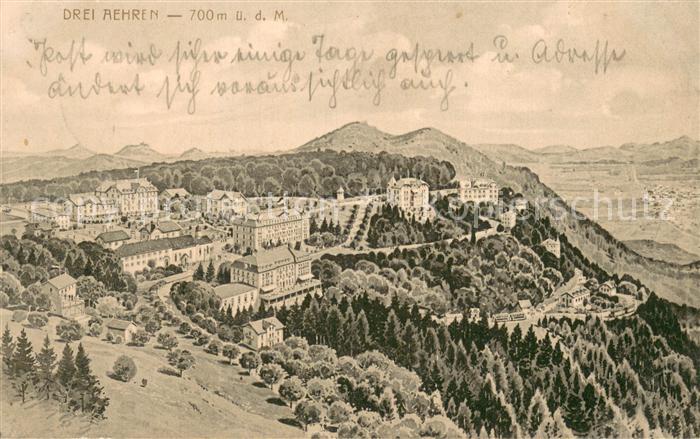 DREI AEHREN — 700 m ü. d. M.
Post wird sicher einige Tage gesperrt u. Adresse
ändert sich voraussichtlich auch.
Kopierschutz